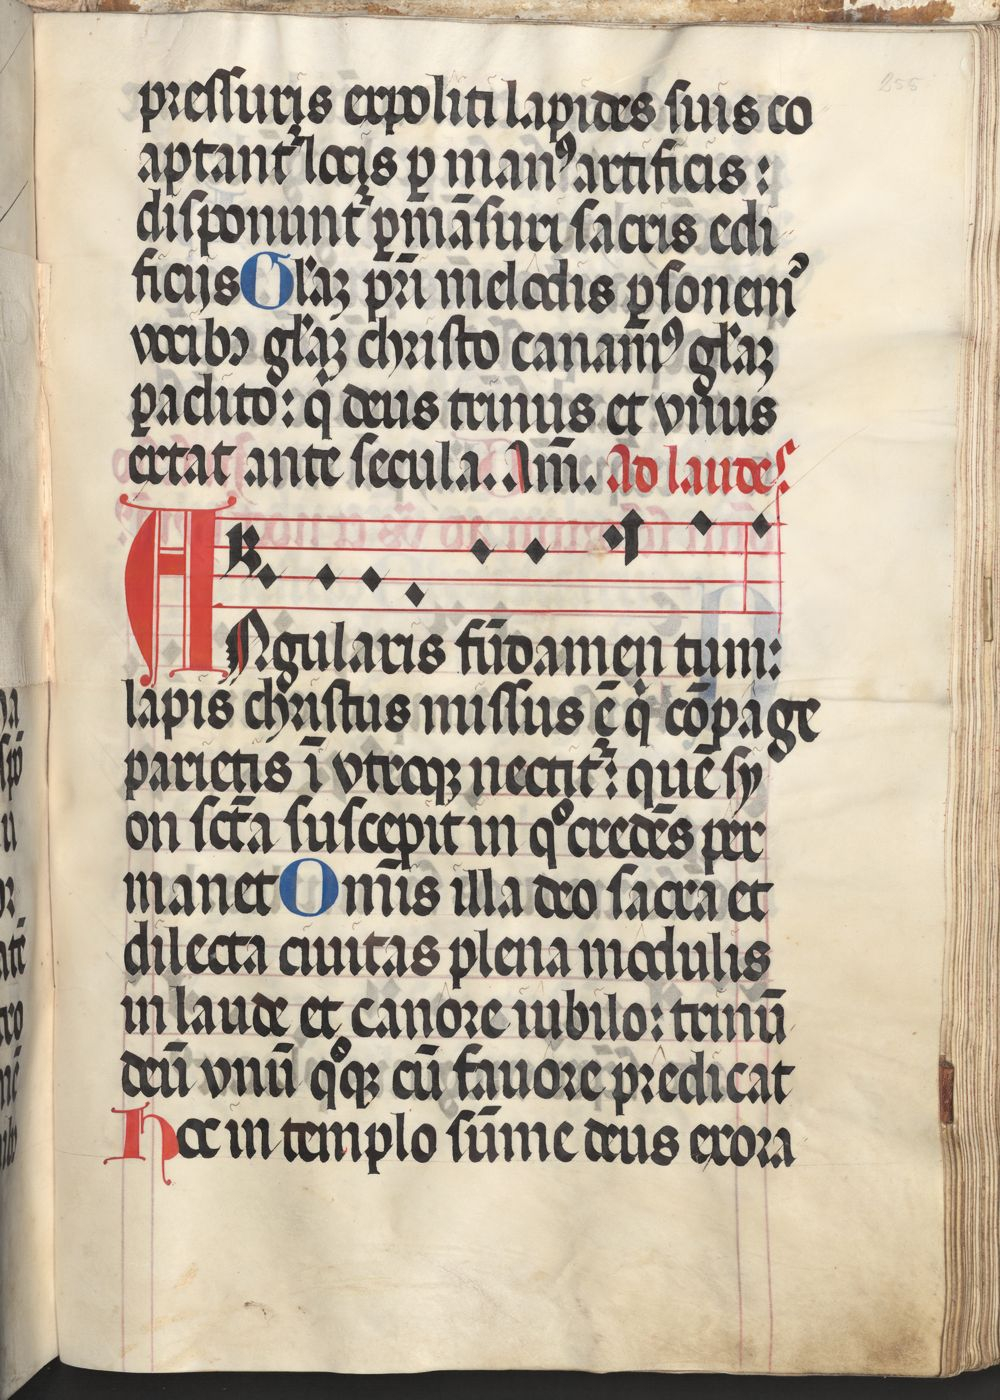 255
pressuris expoliti lapides suis co
aptant᷑ locis ꝑ manꝰ artificis :
disponunt᷑ ꝑmāsuri sacris edi
ficijs Gl'aꝫ pr̄i melodis ꝑsonemꝰ
vocibꝫ gl'aꝫ christo canam̄ꝰ gl'aꝫ
ꝑaclito : q̇ deus trinus et vnus
extat ante secula. Am̄. Ad laudes
ANgularis fūdamen tum:
lapis christus missus ē q̇ cōpage
parietis ī vtroqꝫ nectit᷑ : quē sy
on sct̄a suscepit in qͦ credēs per
manet Om̄is illa deo sacra et
dilecta ciuitas plena modulis
in laude et canore iubilo : trinū
deū vnū qͦqꝫ cū fauore predicat
hoc in templo sūme deus exora